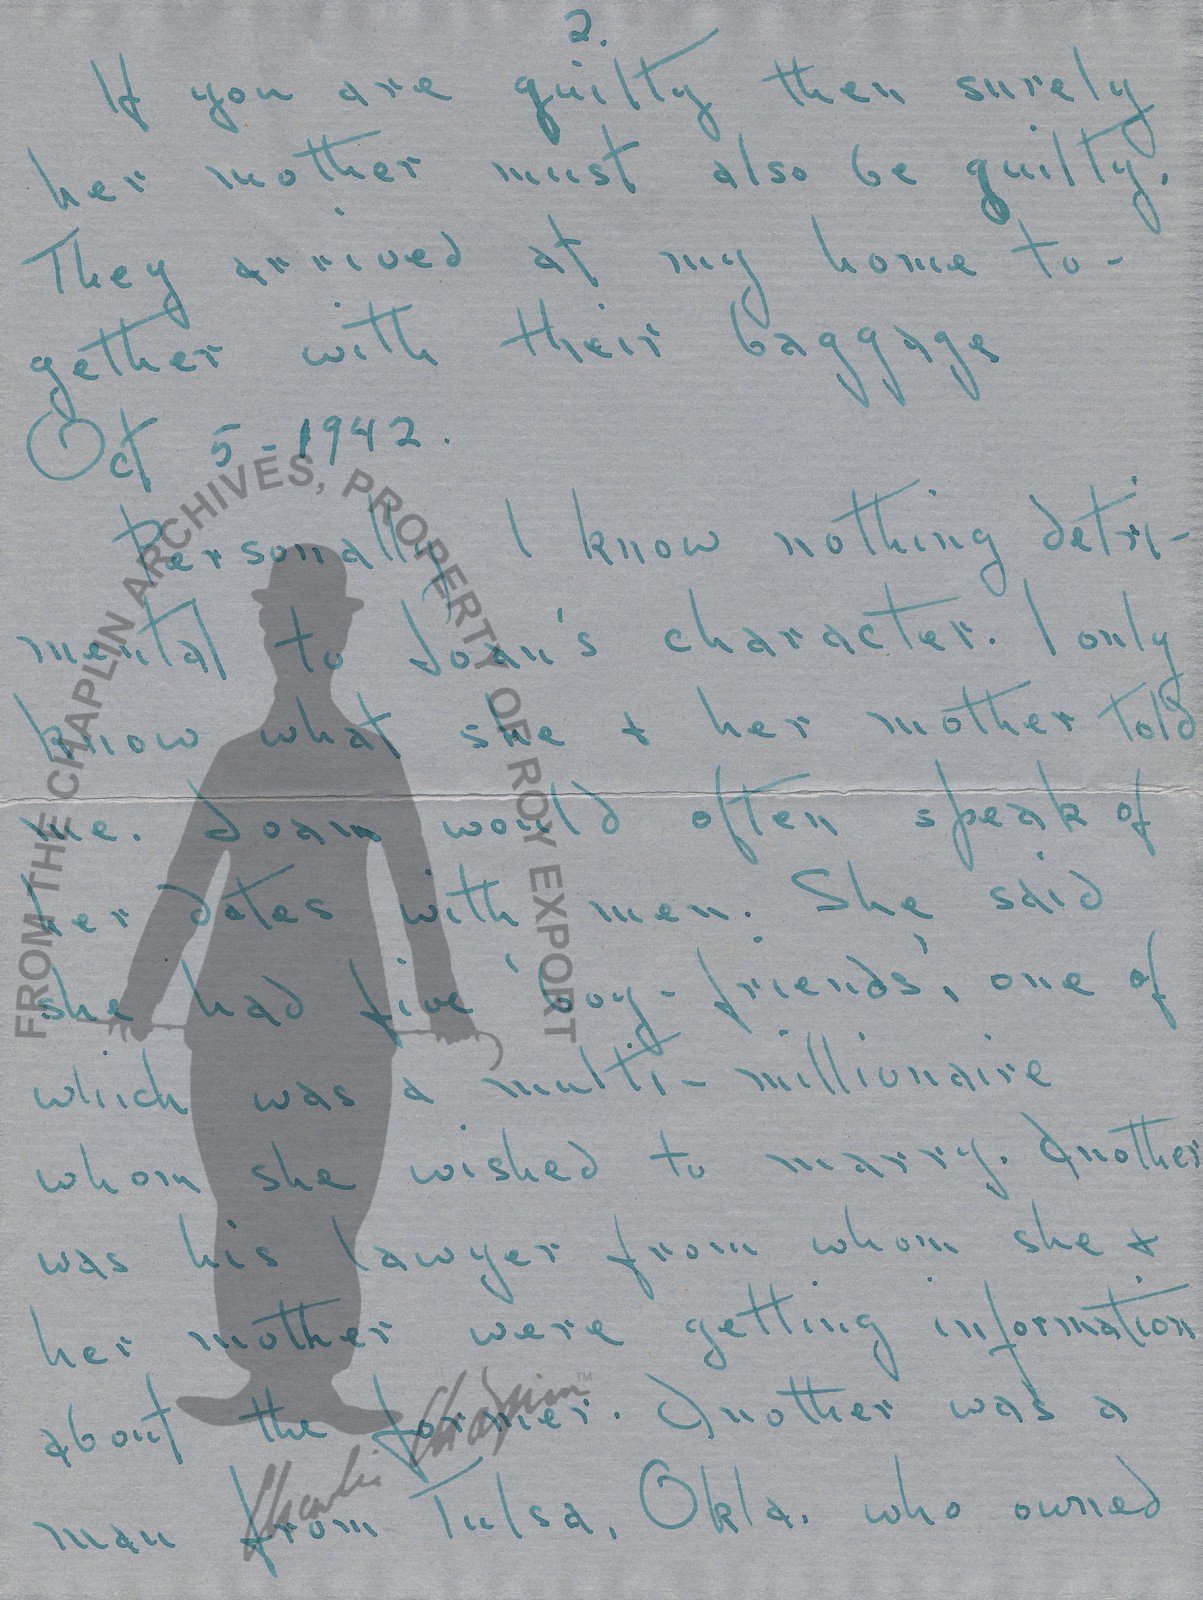 2.
If you are guilty then surely
her mother must also be guilty.
They arrived at my home to-
gether with their baggage
Oct 5-1942.
Personally, I know nothing detri-
mental to Joan's character. I only
know what she & her mother told
me. Joan would often speak of
her dates with men. She said
she had five 'boy-friends', one of
which was a multi-millionaire
whom she wished to marry. Another
was his lawyer from whom she &
her mother were getting information
about the former. Another was a
man from Tulsa, Okla. who owned
FROM THE CHAPLIN ARCHIVES, PROPERTY OF ROY EXPORT
Charlie Chaplin™